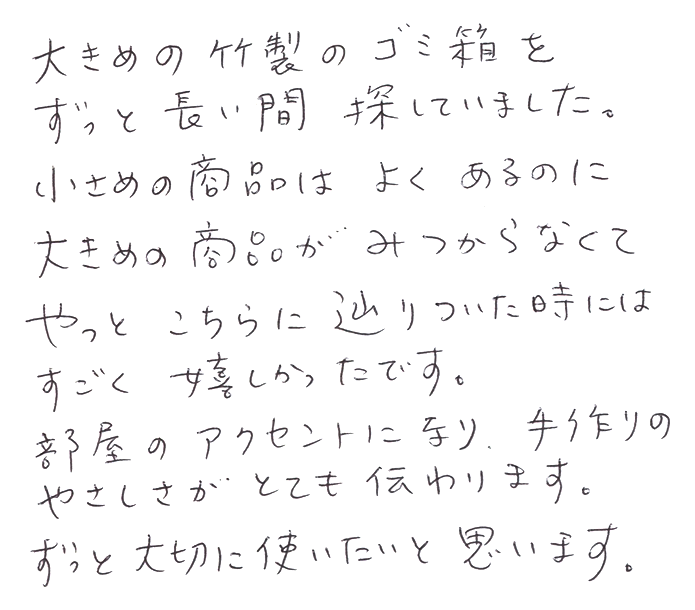 大きめの竹製のゴミ箱を
ずっと長い間探していました。
小さめの商品はよくあるのに
大きめの商品がみつからなくて
やっとこちらに辿りついた時には
すごく嬉しかったです。
部屋のアクセントになり、手作りの
やさしさがとても伝わります。
ずっと大切に使いたいと思います。